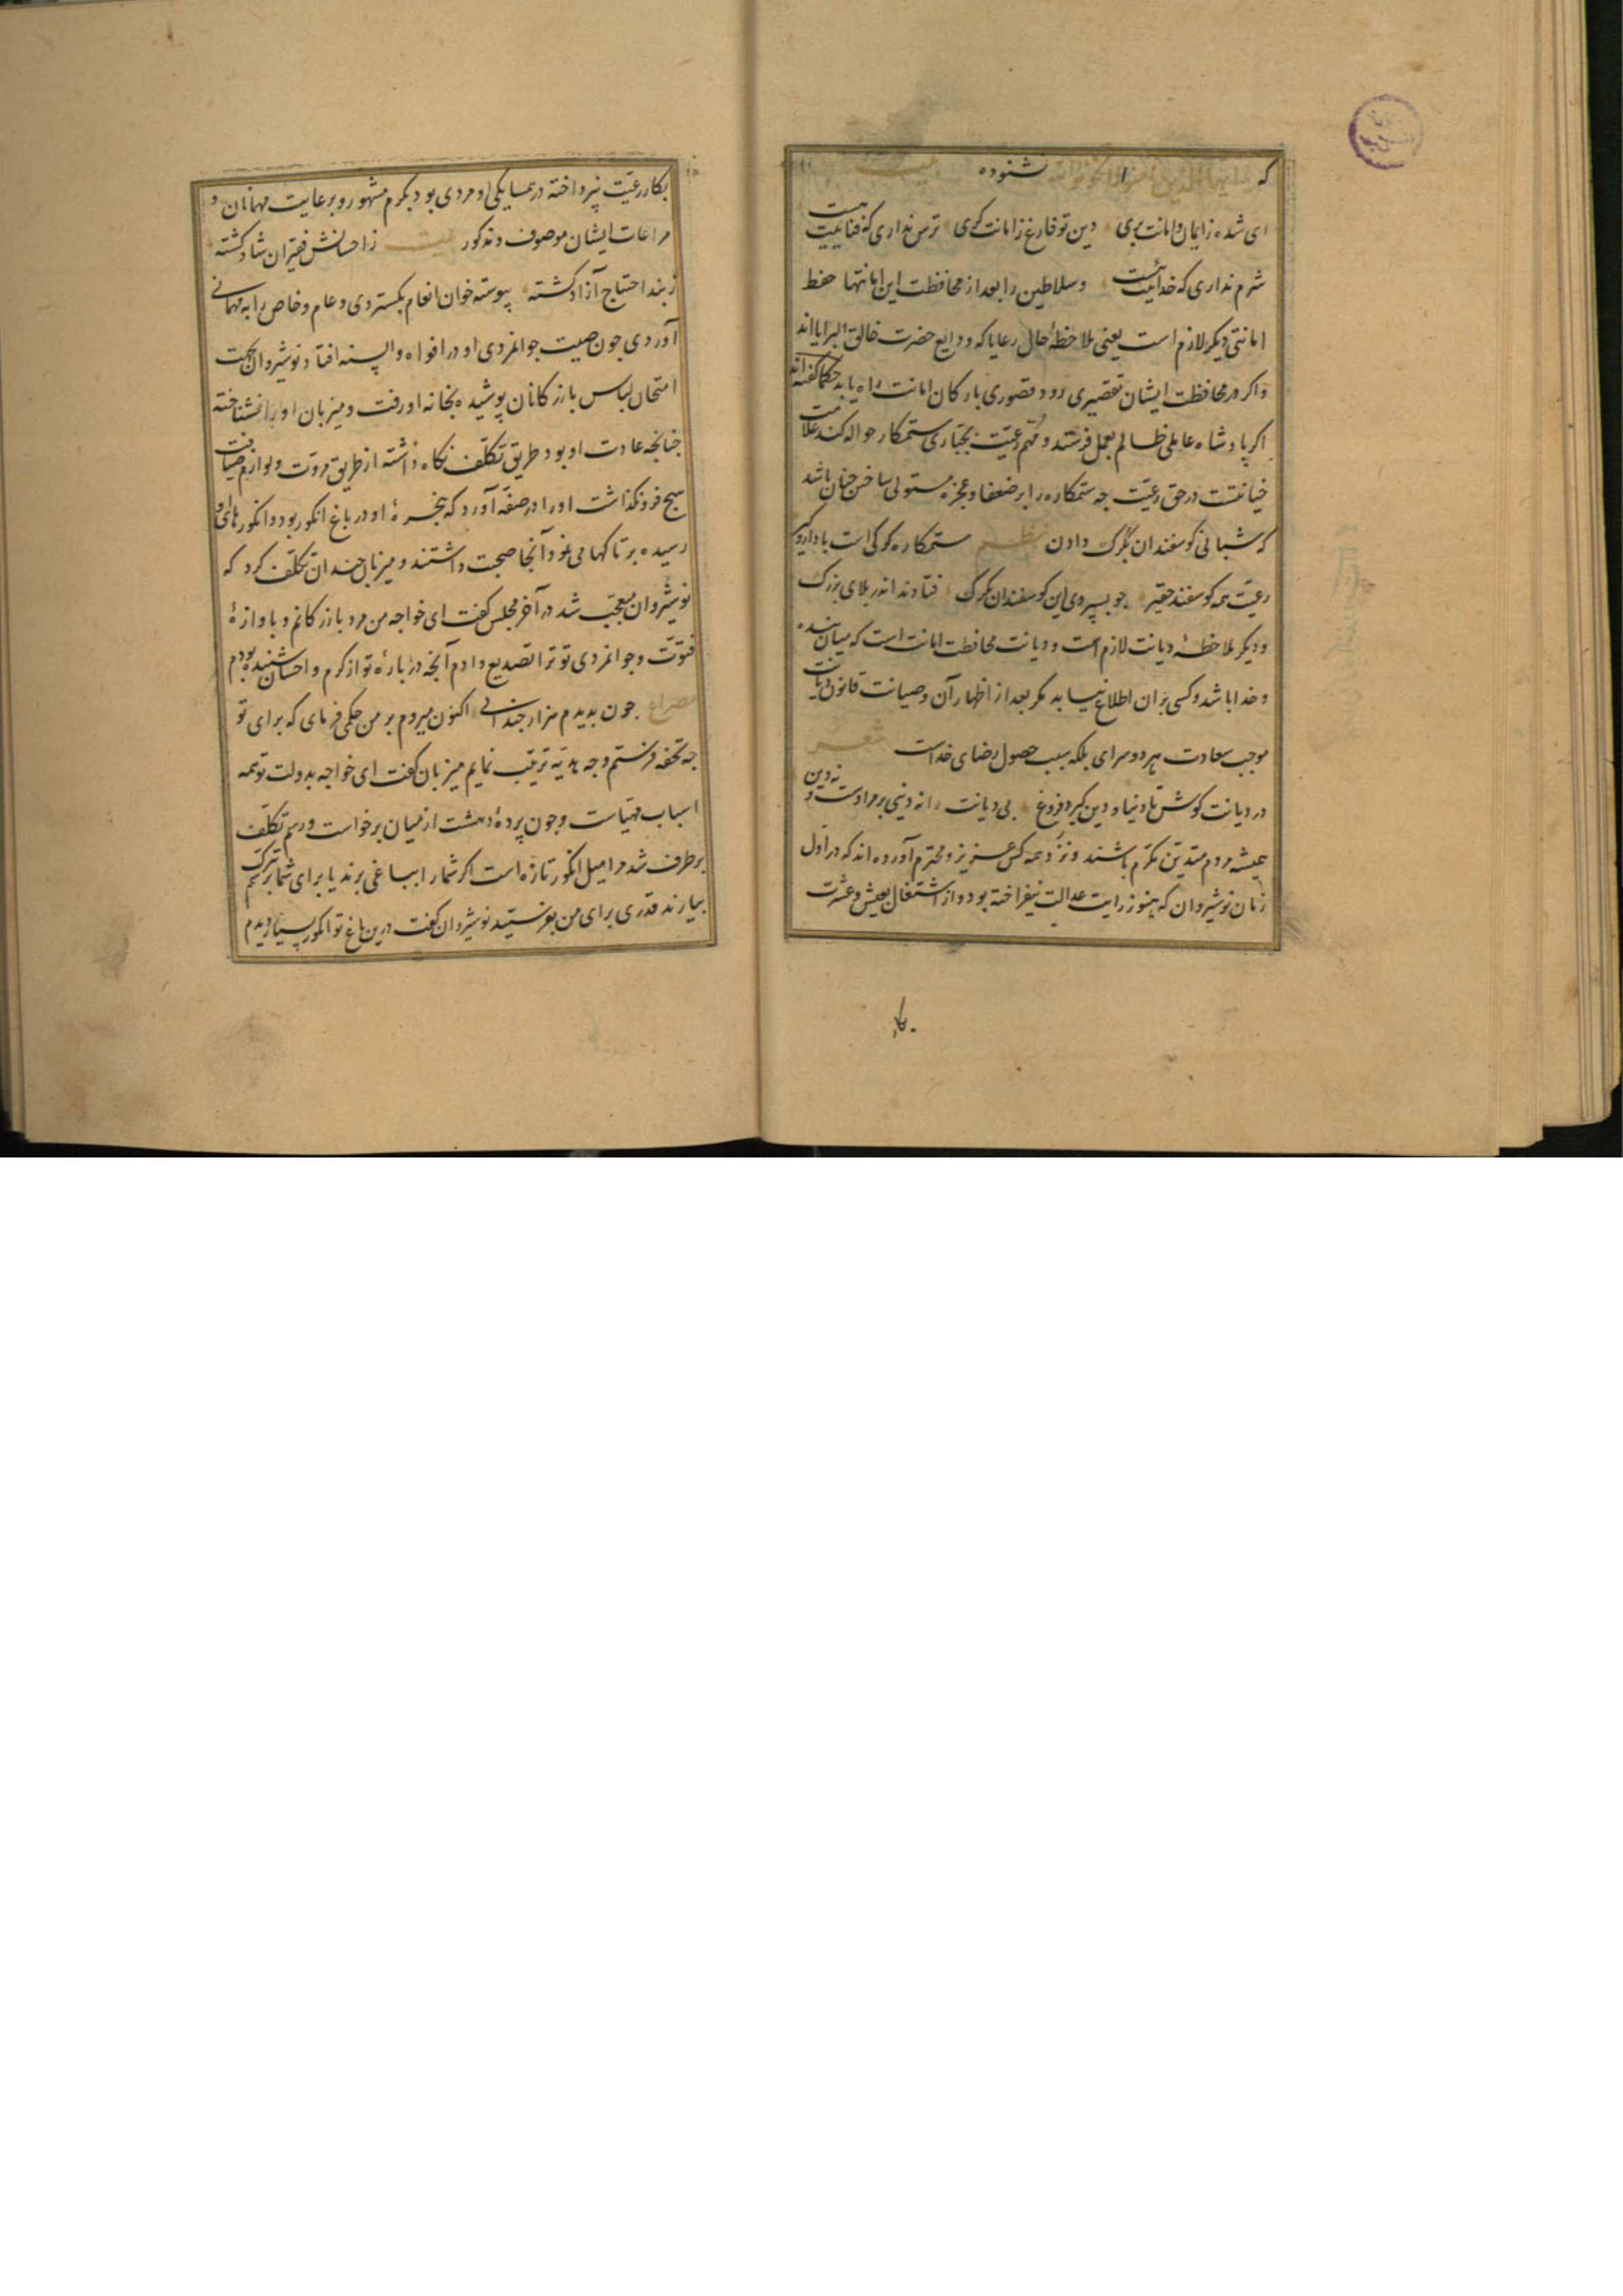 که یا ایها الذین امنوا لا تخونوا الله شنوده بیت
ای شده ز ایمان و امانت بری دین تو فارغ ز امانت گری ترس نداری که فنائیت هست
شرم نداری که خدائیت هست و سلاطین را بعد از محافظت این امانتها حفظ
امانتی دیکر لازم است یعنی ملاحظهٔ حال رعایا که ودایع حضرت خالق البرایااند
و اکر در محافظت ایشان تقصیری رود قصوری بارکان امانت راه یابد حکما کفته‌اند
اکر پادشاه عاملی ظالم بعمل فرستد و مهم رعیّت بجبّاری ستمکار حواله کند علامت
خیانتست در حق رعیّت جه ستمکاره را بر ضعفا و عجزه مستولی ساختن جنان باشد
که شبانی کوسفندان بکرک دادن نظم ستمکاره کرکی است با دار و کیر
رعیّت همه کوسفند حقیر جو بسپردی این کوسفندان بکرک فتادند اندر بلای بزرک
و دیکر ملاحظهٔ دیانت لازم است و دیانت محافظت امانت است که میان بنده
و خدا باشد و کسی بران اطلاع نیابد مکر بعد از اظهار آن و صیانت قانون دیانت
موجب سعادت هر دو سرای بلکه سبب حصول رضای خداست شعر
در دیانت کوش تا دنیا و دین کیرد فروغ بی دیانت را نه دنیی بر مرادست و نه دین
همیشه مردم متدیّن مکرّم باشند و نزد همه کس عزیز و محترم آورده‌اند که در اول
زمان نوشیروان که هنوز رایت عدالت نیفراخته بود و از اشتغال بعیش و عشرت
بکار
بکار رعیّت نپرداخته در همسایکی او مردی بود بکرم مشهور و برعایت مهمانان و
مراعات ایشان موصوف و مذکور بیت ز احسانش فقیران شاد کشته
ز بند احتیاج آزاد کشته پیوسته خوان انعام بکستردی و عام و خاص را به مهمانی
آوردی جون صیت جوانمردی او در افواه و السنه افتاد نوشیروان بجهت
امتحان لباس بازرکانان پوشیده بخانه او رفت و میزبان او را نشناخته
جنانجه عادت او بود طریق تکلّف نکاه داشته از طریق مروّت و لوازم ضیافت
هیج فرو نکذاشت او را در صفّه آورد که پنجرهٔ او در باغ انکور بود و انکورهای
رسیده بر تاکها می‌نمود آنجا صحبت داشتند و میزبان جندان تکلّف کرد که
نوشیروان متعجّب شد در آخر مجلس کفت ای خواجه من مرد بازرکانم و باوازهٔ
فتوّت و جوانمردی تو ترا تصدیع دادم آنجه در بارهٔ تو از کرم و احسان شنیده بودم
مصراع جون بدیدم هزار جندانی اکنون میروم بر من حکمی فرمای که برای تو
جه تحفه فرستم و جه هدیّه ترتیب نمایم میزبان کفت ای خواجه بدولت تو همه
اسباب مهیّاست و جون پردهٔ دهشت از میان برخواست و رسم تکلّف
بر طرف شد مرا میل انکور تازه است اکر شما را بباغی برند یا برای شما برسم تبرّک
بیارند قدری برای من بفرستید نوشیروان کفت درین باغ تو انکور بسیار دیدم